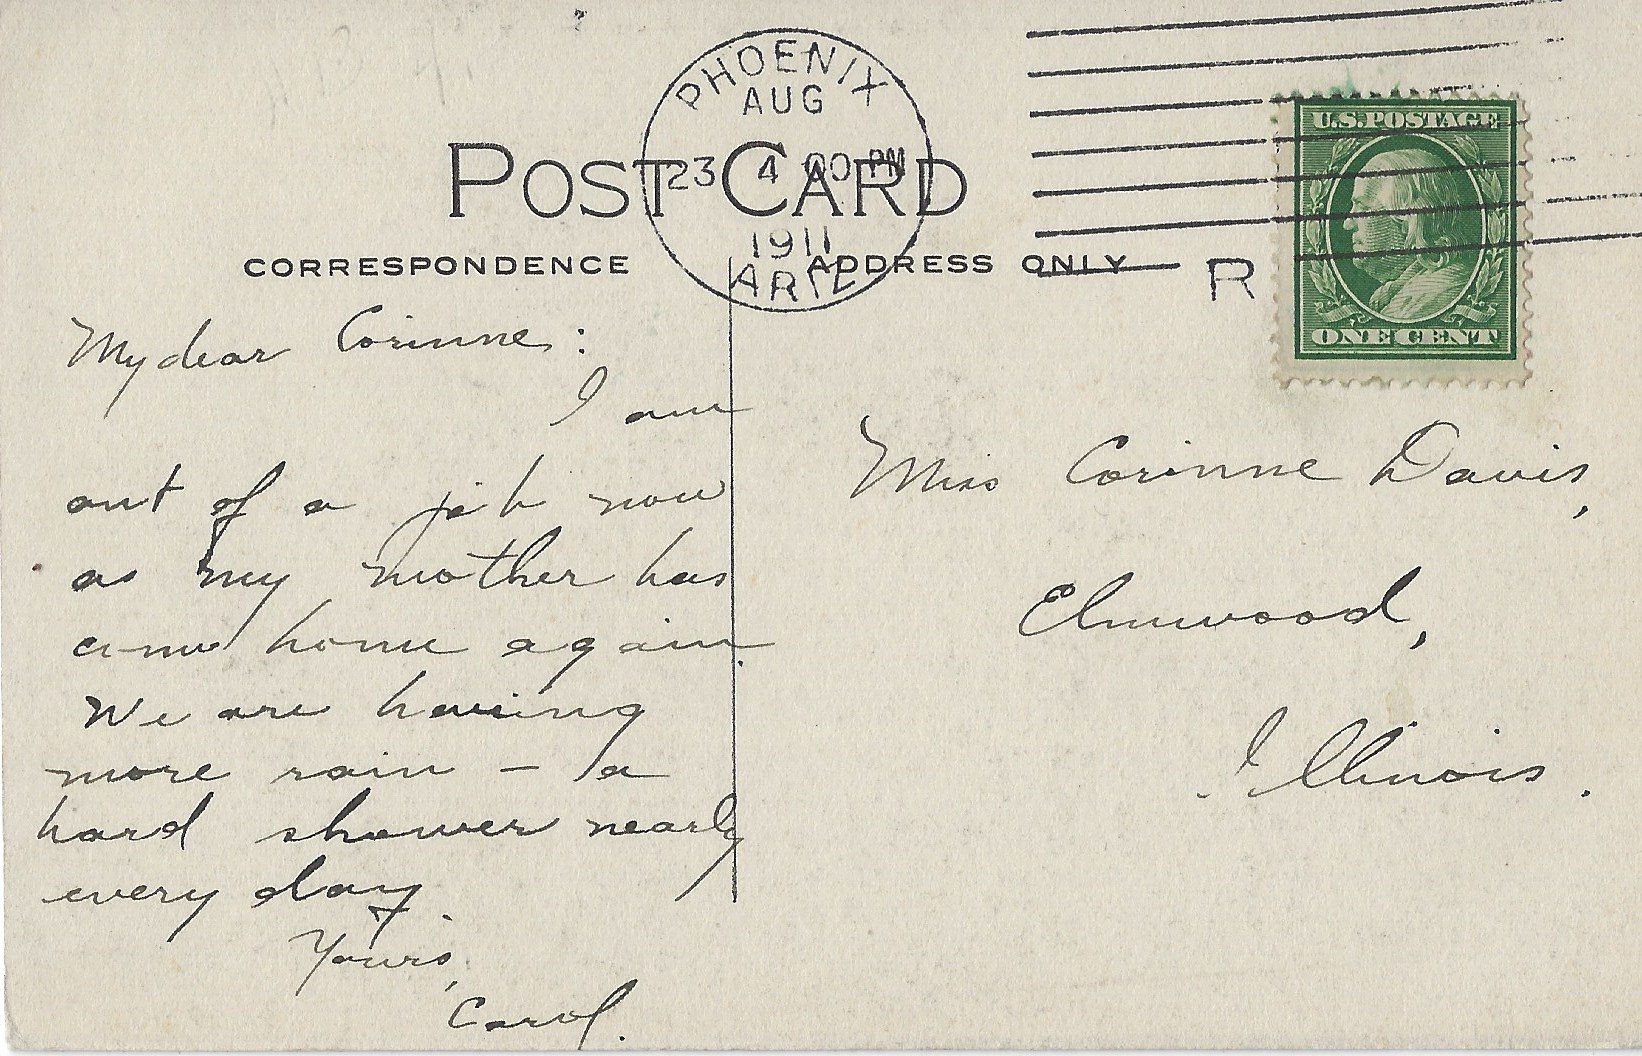 PHOENIX
AUG
23 4 00 PM
1911
ARIZ
POST CARD
CORRESPONDENCE
ADDRESS ONLY
R
U.S. POSTAGE
ONE CENT
My dear Corinne:
I am
out of a job now
as my mother has
come home again.
We are having
more rain – a
hard shower nearly
every day
Yours,
Carol.
Miss Corinne Davis,
Elmwood,
Illinois.